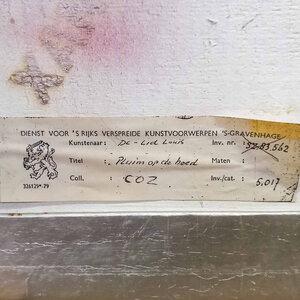 DIENST VOOR 'S RIJKS VERSPREIDE KUNSTVOORWERPEN 'S-GRAVENHAGE
Kunstenaar: De - Lid Louis Inv. nr. :
Titel : Pluim op de hoed Maten :
Coll. : COZ Inv./cat. : 5.017
326129*-79